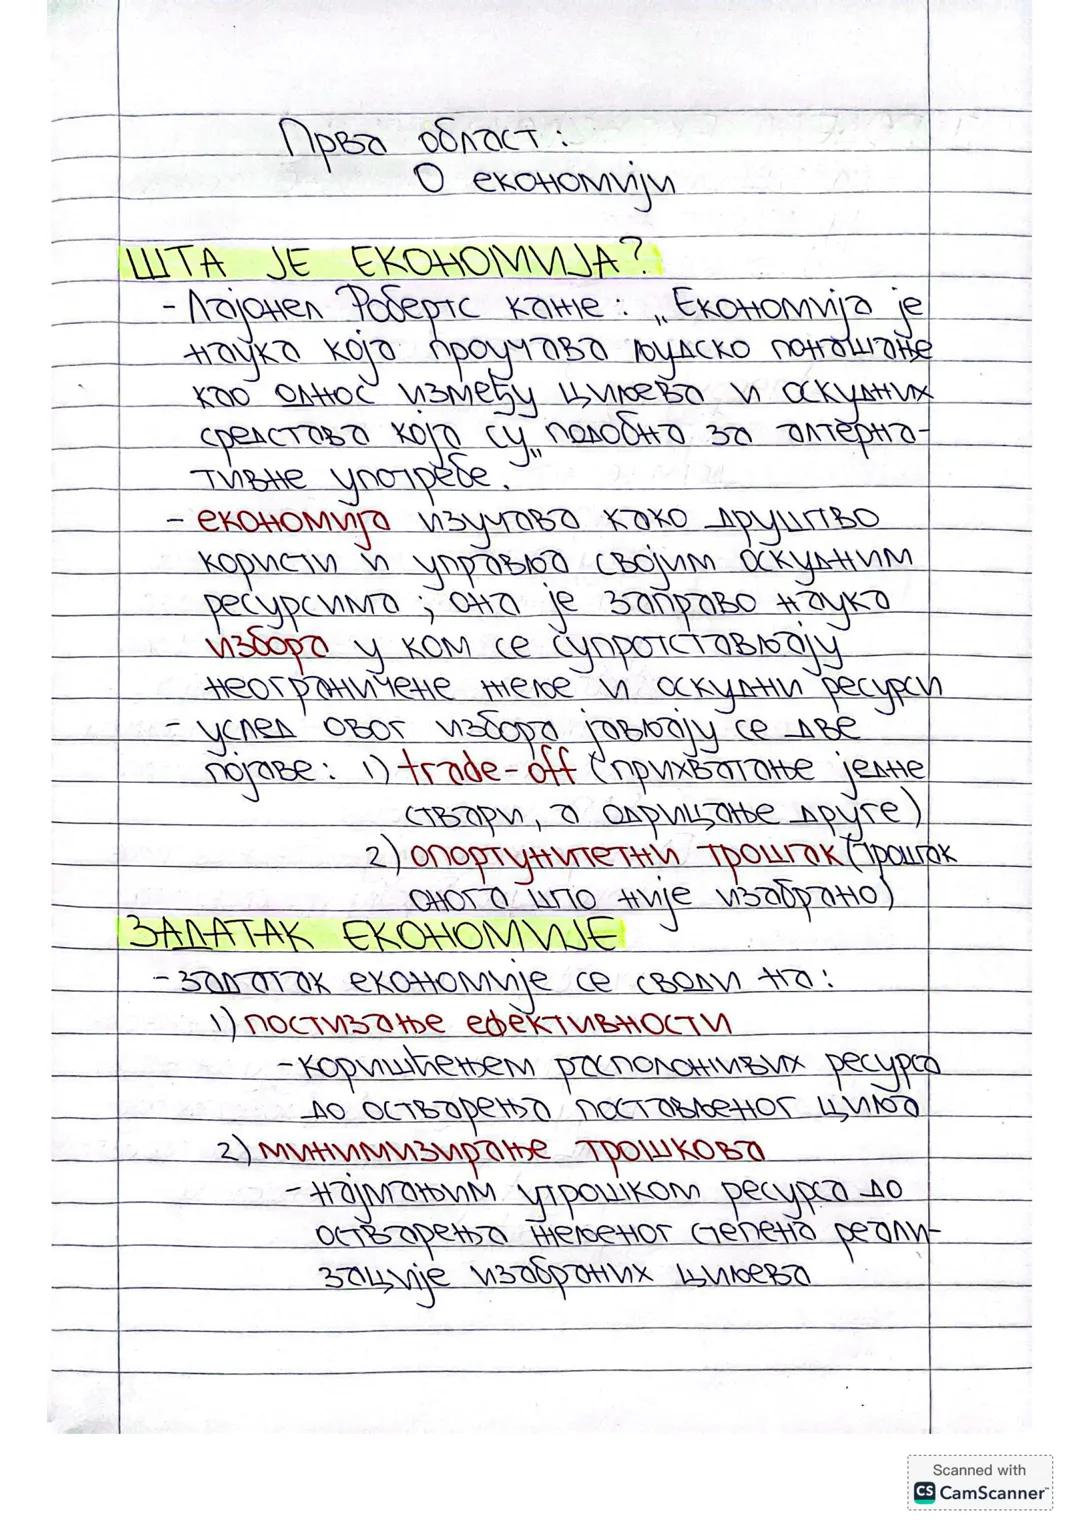 Прва област:
О економији
ШТА ЈЕ ЕКОНОМИЈА?
- Лајонел Робертс каже: „Економија је
наука која проучава људско понашање
као однос између циљева и оскудних
средстава која су подобна за алтерна-
тивне употребе."
- економија изучава како друштво
користи и управља својим оскудним
ресурсима; она је заправо наука
избора у ком се супротстављају
неограничене жеље и оскудни ресурси
- услед овог избора јављају се две
појаве: 1) trade-off (прихватање једне
ствари, а одрицање друге)
2) опортунитетни трошак (трошак
онога што није изабрано)
ЗАДАТАК ЕКОНОМИЈЕ
- задатак економије се своди на:
1) постизање ефективности
- коришћењем расположивих ресурса
до остварења постављеног циља
2) минимизирање трошкова
- најмањим утрошком ресурса до
остварења жељеног степена реали-
зације изабраних циљева
Scanned with
CS CamScanner